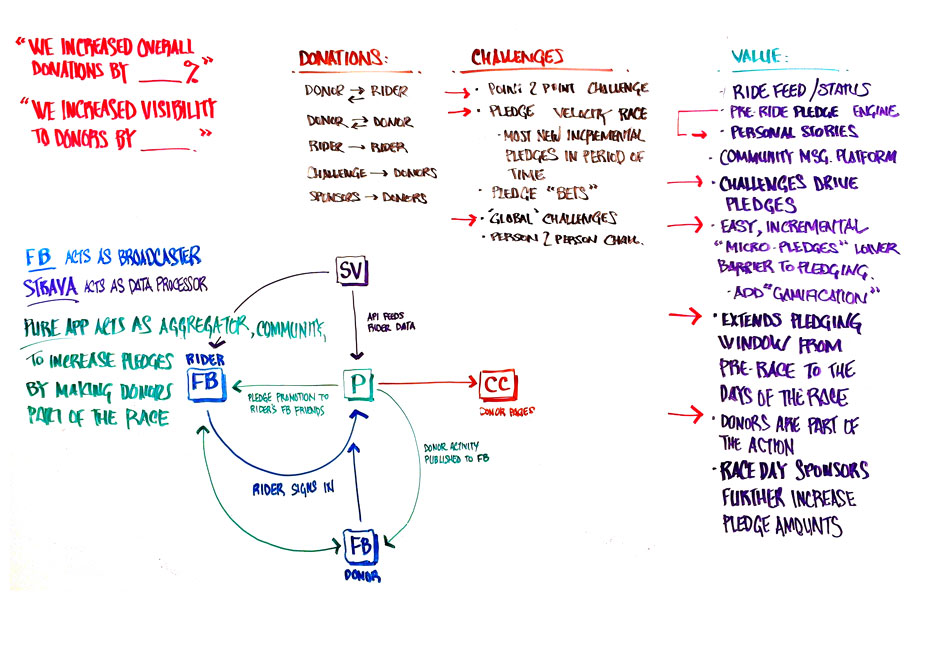 "WE INCREASED OVERALL
DONATIONS BY ____%"
"WE INCREASED VISIBILITY
TO DONORS BY ____"
DONATIONS:
DONOR ⇄ RIDER
DONOR ⇄ DONOR
RIDER → RIDER
CHALLENGE → DONORS
SPONSORS → DONORS
CHALLENGES
→ • POINT 2 POINT CHALLENGE
→ • PLEDGE VELOCITY RACE
• MOST NEW INCREMENTAL
PLEDGES IN PERIOD OF
TIME
• PLEDGE "BETS"
→ • "GLOBAL" CHALLENGES
• PERSON 2 PERSON CHALL.
VALUE:
• RIDE FEED/STATUS
• PRE-RIDE PLEDGE ENGINE
→ • PERSONAL STORIES
• COMMUNITY MSG. PLATFORM
→ • CHALLENGES DRIVE
PLEDGES
→ • EASY, INCREMENTAL
"MICRO-PLEDGES" LOWER
BARRIER TO PLEDGING.
• ADD "GAMIFICATION"
→ • EXTENDS PLEDGING
WINDOW FROM
PRE-RACE TO THE
DAYS OF THE RACE
→ • DONORS ARE PART OF
THE ACTION
• RACE DAY SPONSORS
FURTHER INCREASE
PLEDGE AMOUNTS
FB ACTS AS BROADCASTER
STRAVA ACTS AS DATA PROCESSOR
PURE APP ACTS AS AGGREGATOR, COMMUNITY,
TO INCREASE PLEDGES
BY MAKING DONORS
PART OF THE RACE
SV
API FEEDS
RIDER DATA
RIDER
FB
PLEDGE PROMOTION TO
RIDER'S FB FRIENDS
P
CC
DONOR PAGES
DONOR ACTIVITY
PUBLISHED TO FB
RIDER SIGNS IN
FB
DONOR